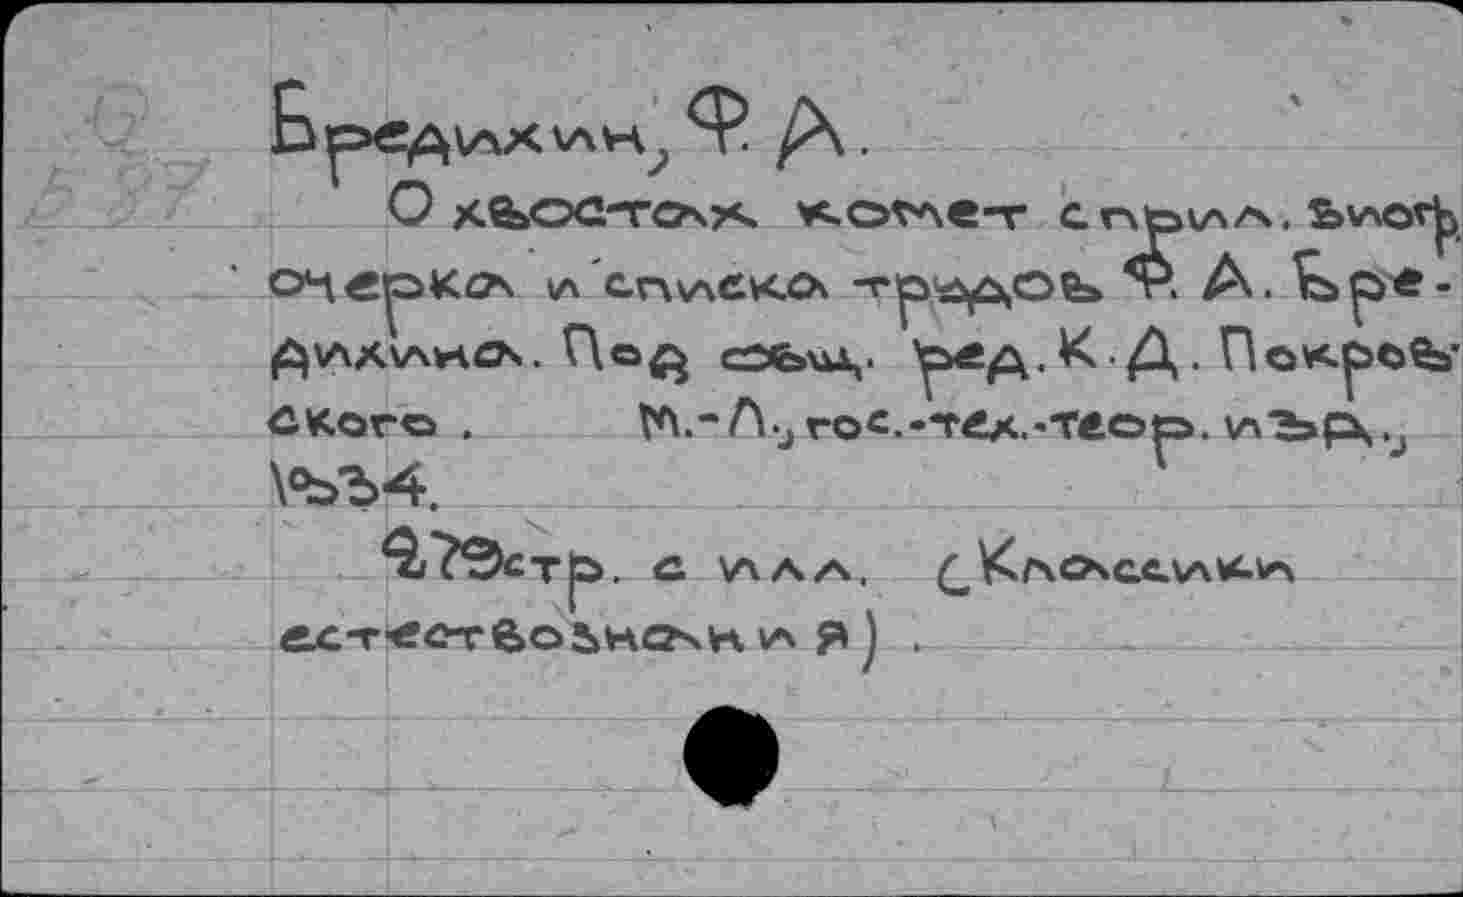 Бредихин, Ф. А.
О хвостах комет с прил. биогр.
очерка и списка трудов Ф. А. Бре-
дихина. Под общ. ред. К. Д. Покров-
ского . М.-Л., гос.-тех.-теор. изд.,
1934.
279 стр. с илл. (Классики
естествознания) .